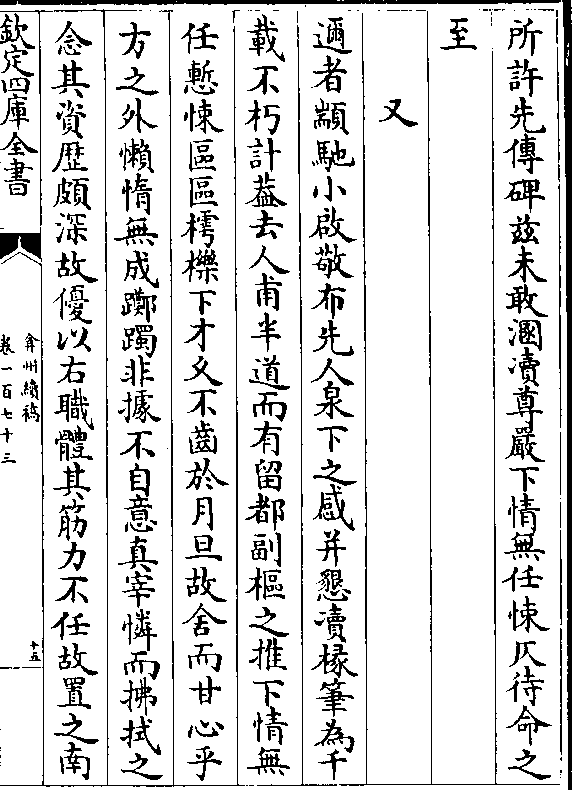 所許先傳碑兹未敢溷凟尊嚴下情無任悚仄待命之
至
又
邇者顓馳小啟敬布先人泉下之感并懇凟椽筆為千
載不朽計葢去人甫半道而有留都副樞之推下情無
任慙悚區區樗櫟下才久不齒於月旦故舍而甘心乎
方之外懶惰無成躑躅非據不自意真宰憐而拂拭之
念其資歴頗深故優以右職體其筋力不任故置之南
欽定四庫全書
弇州續稿
卷一百七十三
十五